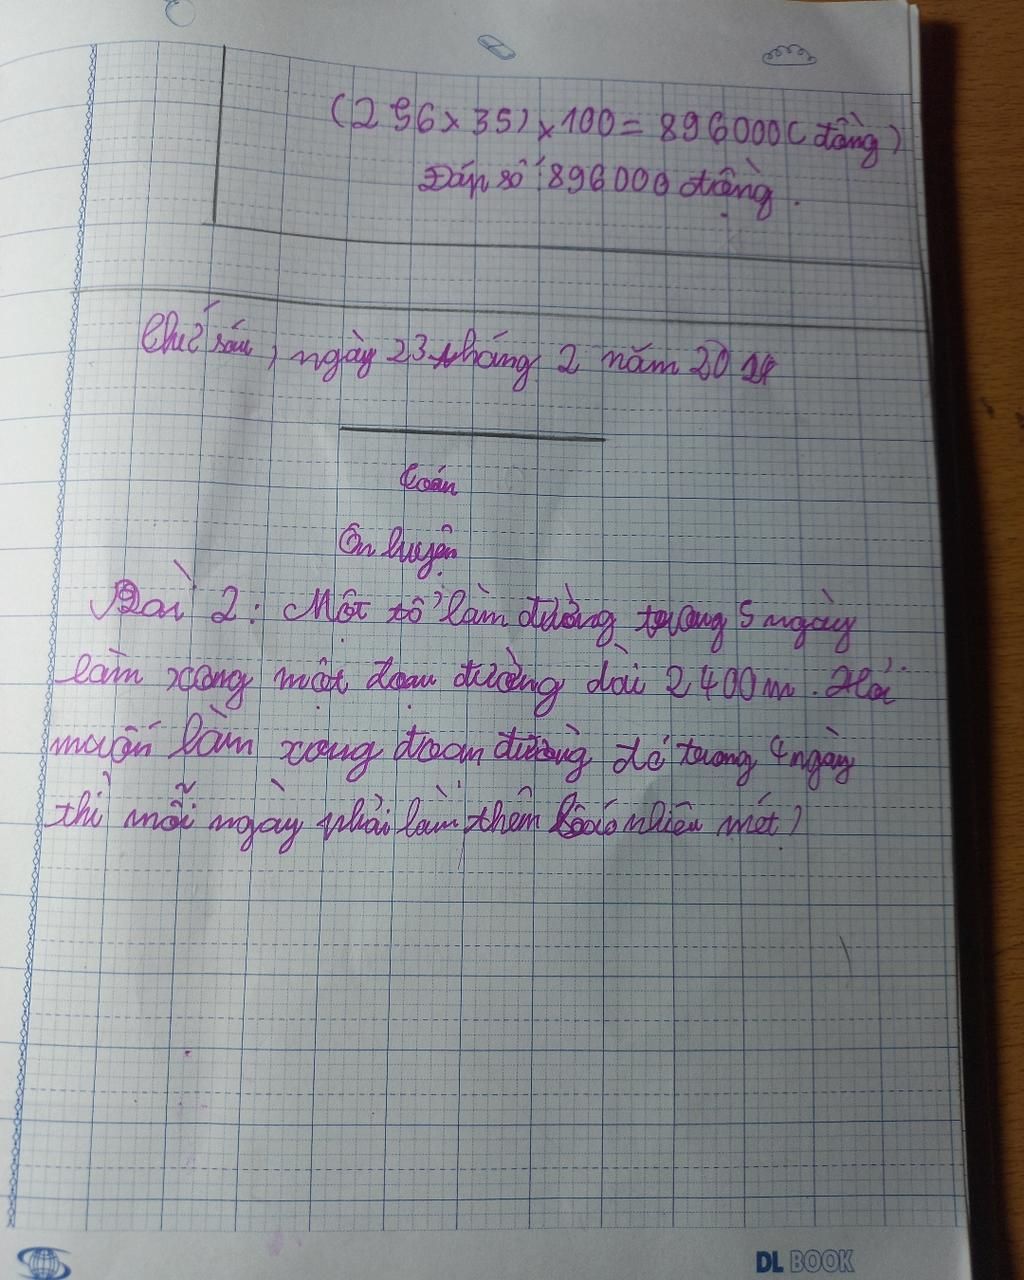 (256 x 35) x 100 = 896000 (đồng)
Đáp số 896000 đồng.
Thứ sáu, ngày 23 tháng 2 năm 2024
Toán
Ôn luyện
Bài 2: Một tổ làm đường trong 5 ngày
làm xong một đoạn đường dài 2400m. Hỏi
muốn làm xong đoạn đường đó trong 4 ngày
thì mỗi ngày phải làm thêm bao nhiêu mét?
DL BOOK